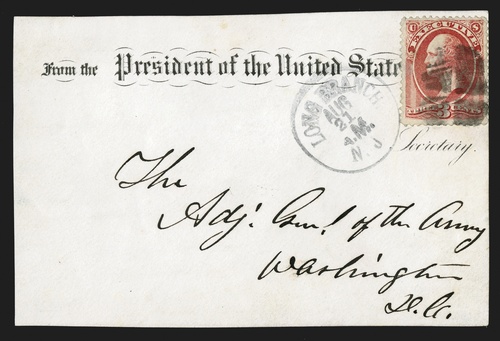 EXECUTIVE
From the President of the United State
3
LONG BRANCH
AUG
21
A.M.
N.J
Secretary.
The
Adj. Genl. of the Army
Washington
D.C.